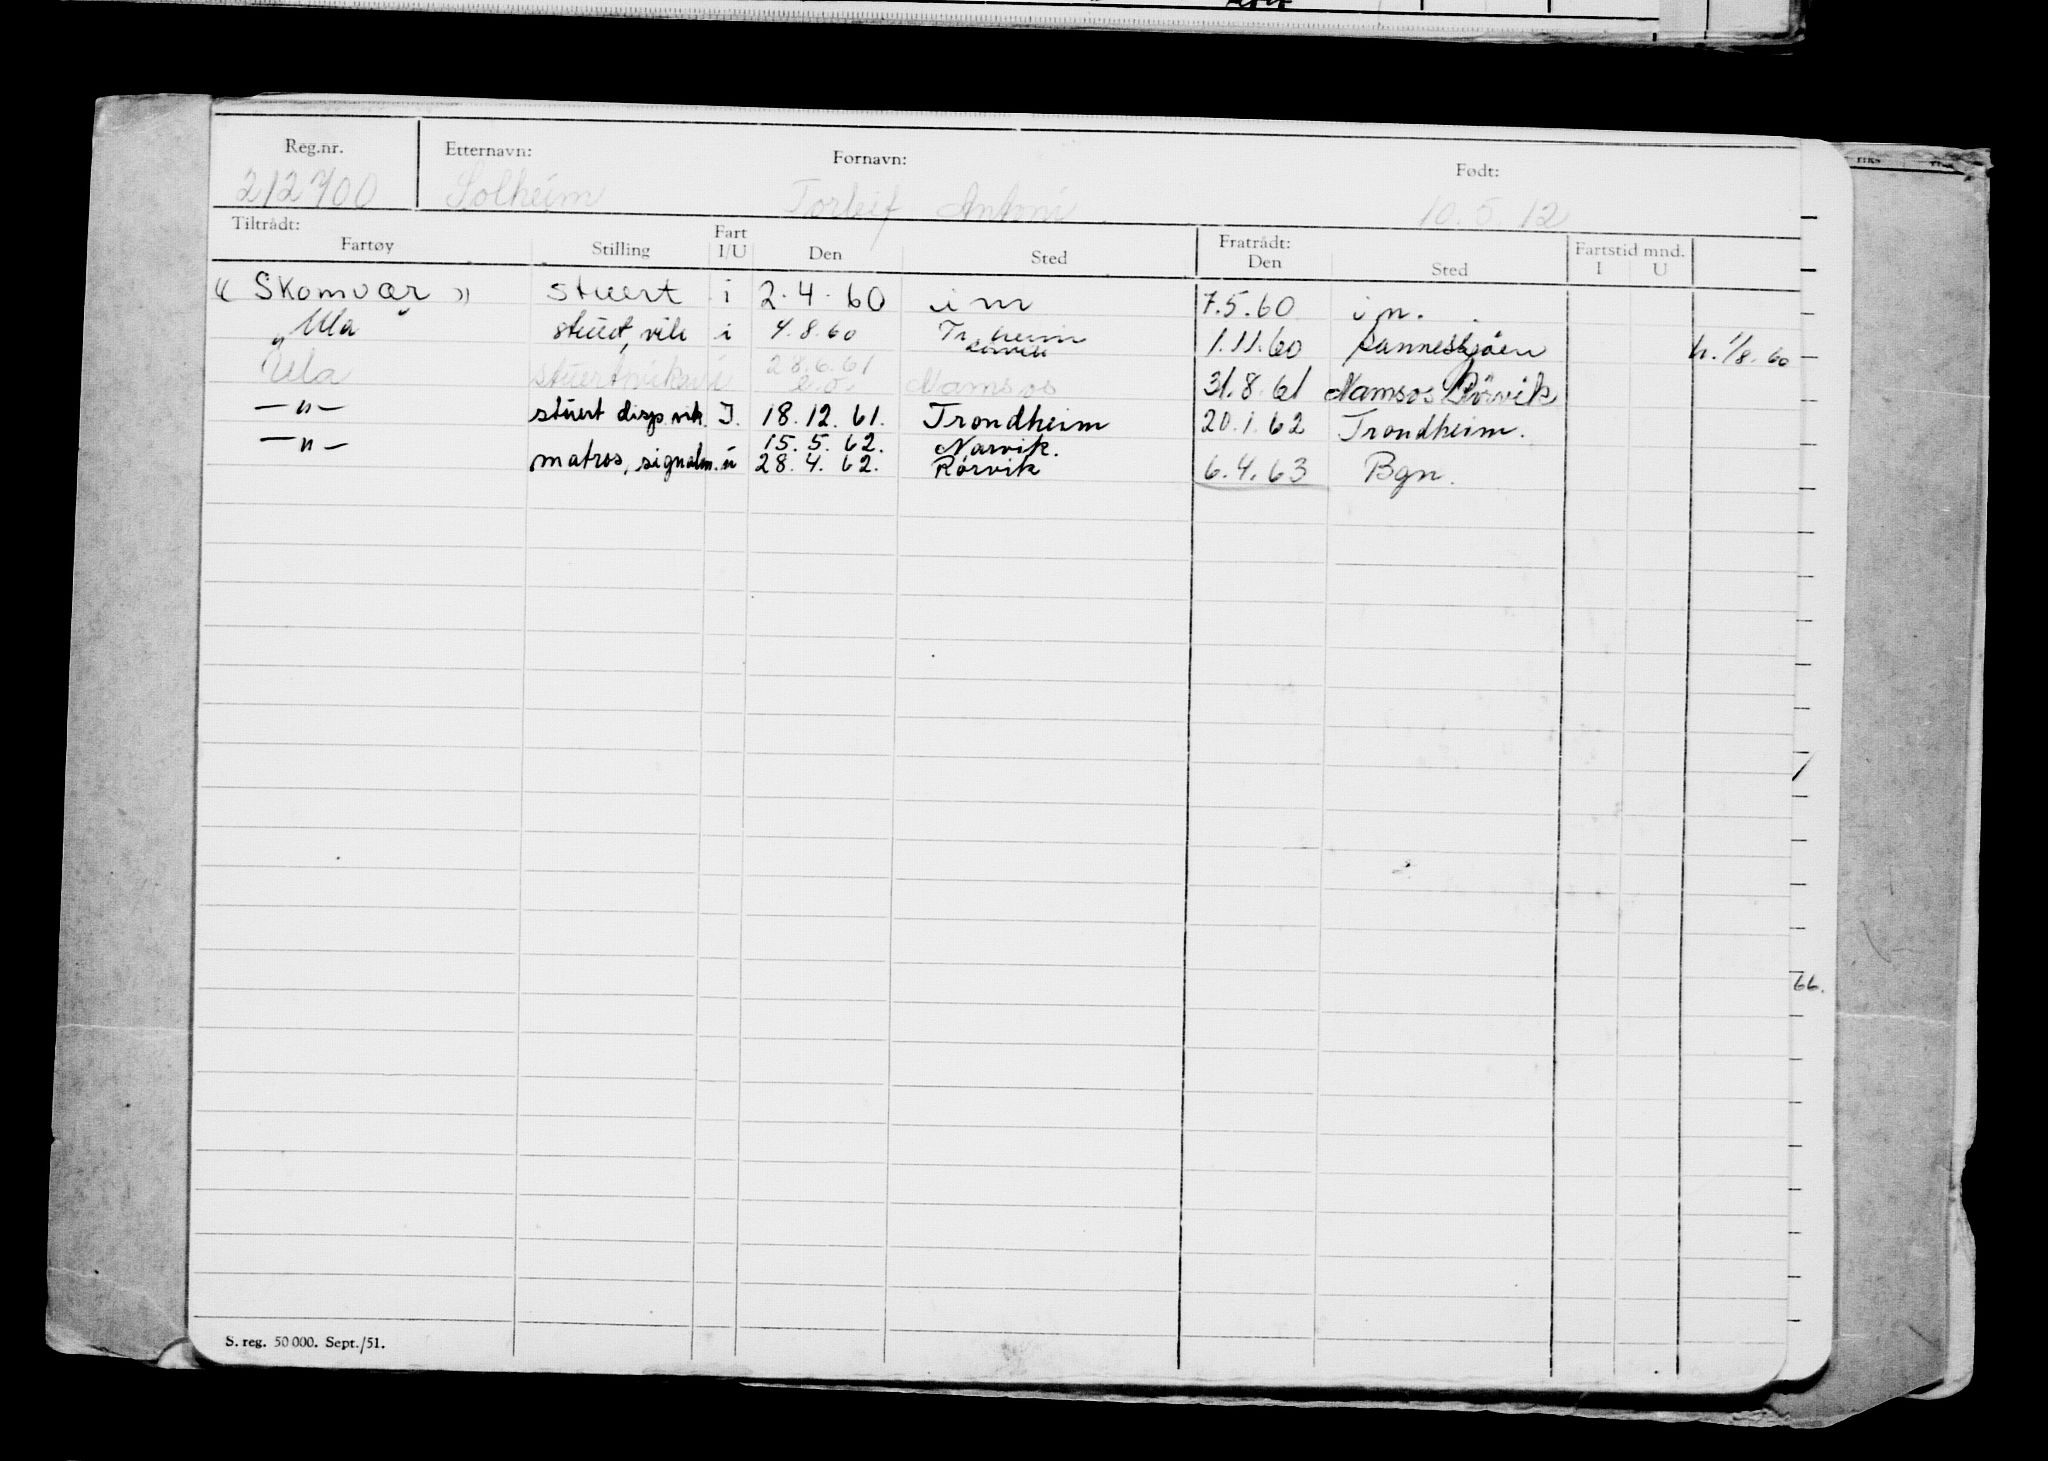 Reg.nr. Etternavn: Fornavn: Født:
212700 Solheim Torleif Antoni 10.5.12
Tiltrådt: Fratrådt: Fartstid mnd.
Fartøy Stilling Fart I/U Den Sted Den Sted I U
« Skomvær » stuert i 2.4.60 i m 7.5.60 i m.
"Ula" stuert, vik i 4.8.60 Tr.heim Rørvik 1.11.60 Sannesjøen h. 1/8.60
Ula stuert vikar i 28.6.61 Namsos 31.8.61 Namsos Rörvik
—"— stuert disp vik. I. 18.12.61. Trondheim 20.1.62 Trondheim.
15.5.62. Narvik.
—"— matros, signalm. u 28.4.62. Rørvik 6.4.63 Bgn.
66.
S. reg. 50 000. Sept./51.